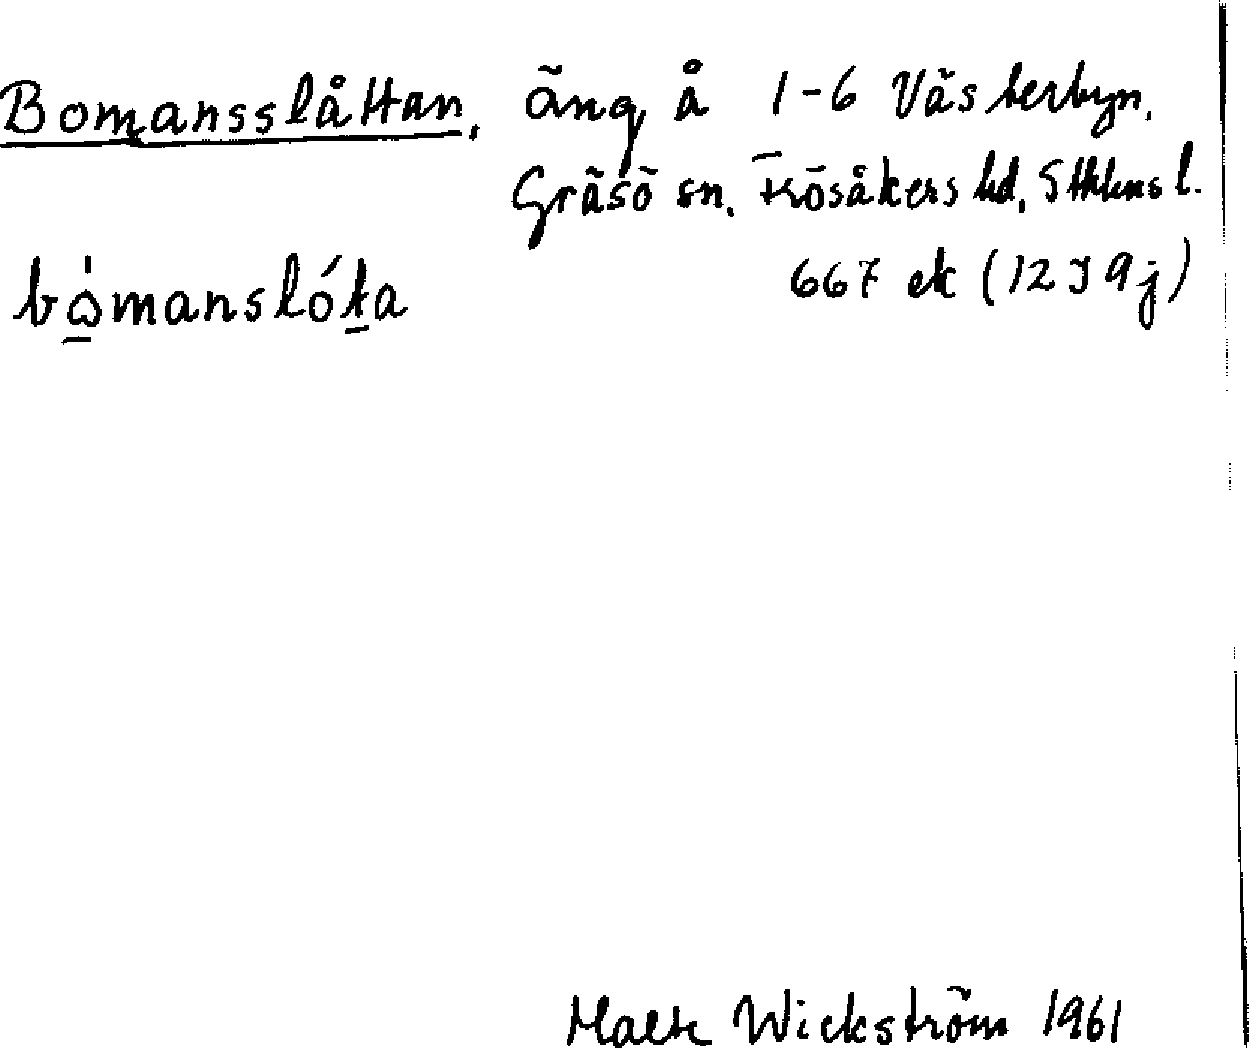 Bomansslåttan, äng å 1-6 Västerbyn.
Gräsö sn. Frösåkers hd, Sthlms l.
bὼmanslóta 667 ek (12 I 9j)
Malte Wickström 1961